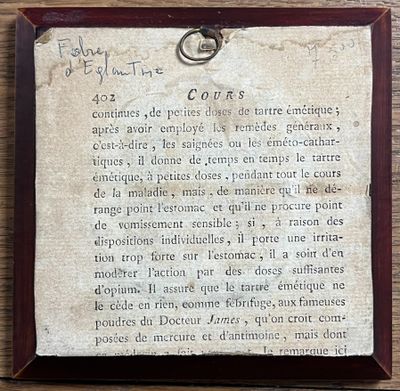 Fabre
d'Eglantine
402 COURS
continues, de petites doses de tartre émétique ;
après avoir employé les remèdes généraux,
c'est-à-dire, les saignées ou les éméto-cathar-
tiques, il donne de temps en temps le tartre
émétique, à petites doses, pendant tout le cours
de la maladie, mais de manière qu'il ne dé-
range point l'estomac et qu'il ne procure point
de vomissement sensible ; si, à raison des
dispositions individuelles, il porte une irrita-
tion trop forte sur l'estomac, il a soin d'en
modérer l'action par des doses suffisantes
d'opium. Il assure que le tartre émétique ne
le cède en rien, comme fébrifuge, aux fameuses
poudres du Docteur James, qu'on croit com-
posées de mercure et d'antimoine, mais dont
Je remarque ici